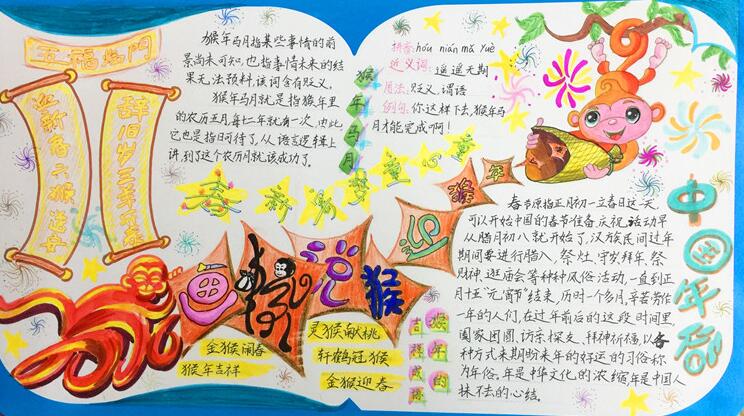 五福临門
迎新春六猴送安
辞旧岁三羊开泰
猴年马月指某些事情的前
景尚未可知,也指事情未来的结
果无法预料,该词含有贬义。
猴年马月就是指猴年里
的农历五月,每十二年就有一次,由此
它也是指日可待了,从语言逻辑上
讲,到了这个农历月就该成功了。
猴年马月
拼音:hóu nián mǎ yuè
近义词:遥遥无期
用法:贬义,谓语
例句:你这样下去,猴年马
月才能完成啊!
春节原指正月初一立春日这一天,
可以开始中国的春节准备庆祝,活动早
从腊月初八就开始了,汉族民间过年
期间要进行腊八,祭灶,守岁拜年,祭
财神,逛庙会等种种风俗活动,一直到正
月十五"元宵节"结束,历时一个多月,辛苦劳作
一年的人们,在过年前后的这段时间里,
阖家团圆,访亲探友,拜神祈福,以各
种方式来期盼来年的好运的习俗称
为年俗。年是中华文化的浓缩,年是中国人
抹不去的心结。
中国年俗
迎猴年
画猴说猴
金猴闹春
猴年吉祥
灵猴献桃
轩鹤冠猴
金猴迎春
猴年的
吉祥成语